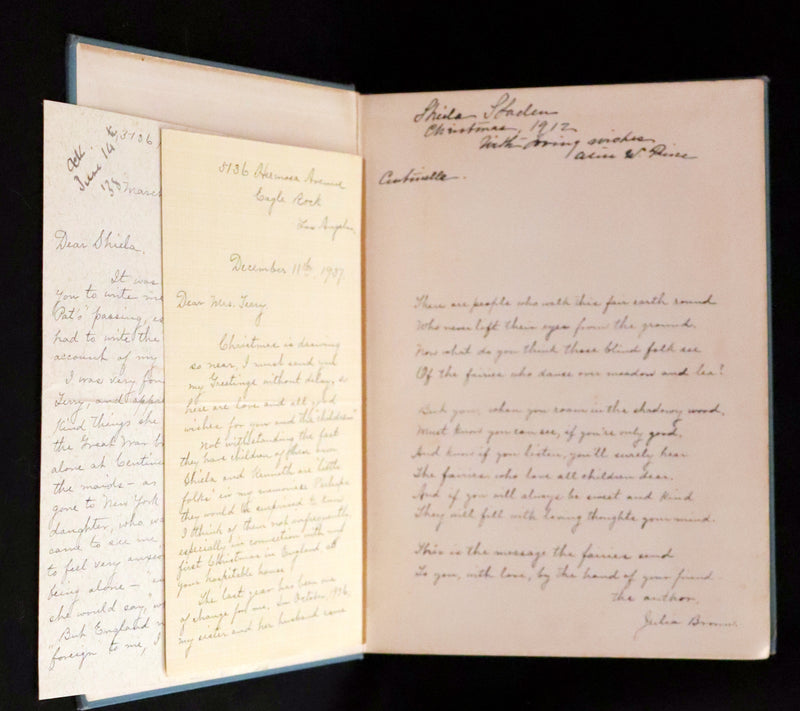 Ack.
June 14th
5136
30 March
Dear Shiela,
It was
you to write me
Pat's passing, es
had to write the
account of my
I was very fon
Terry, and appre
kind things she
the Great War
alone at Centin
the maids – as
gone to New York
daughter, who wa
came to see me
to feel very
being alone –
she would say,
"But England
foreign to me, I
5136 Hermosa Avenue
Eagle Rock
Los Angeles
December 11th, 1937
Dear Mrs. Terry
Christmas is drawing
so near, I must send you
my Greetings without delay, so
here are love and all good
wishes for you and the "children"
Notwithstanding the fact
they have children of their own
Shiela and Kenneth are "little
folks" in my memories. Perhaps
they would be surprised to know
I think of them not infrequently,
especially in connection with my
first Christmas in England at
your hospitable house!
The last year has been one
of change for me. In October, 1936,
my sister and her husband came
Sheila Staden
Christmas, 1912
With loving wishes
W.
Centinelle.
There are people who walk this fair earth round
Who never lift their eyes from the ground.
Now what do you think those blind folk see
Of the fairies who dance over meadow and lea?
But you, when you roam in the shadowy wood,
Must know you can see, if you're only good,
And know if you listen, you'll surely hear
The fairies who love all children dear.
And if you will always be sweet and kind
They will fill with loving thoughts your mind.
This is the message the fairies send
To you, with love, by the hand of your friend
the author,
Julia Brown.